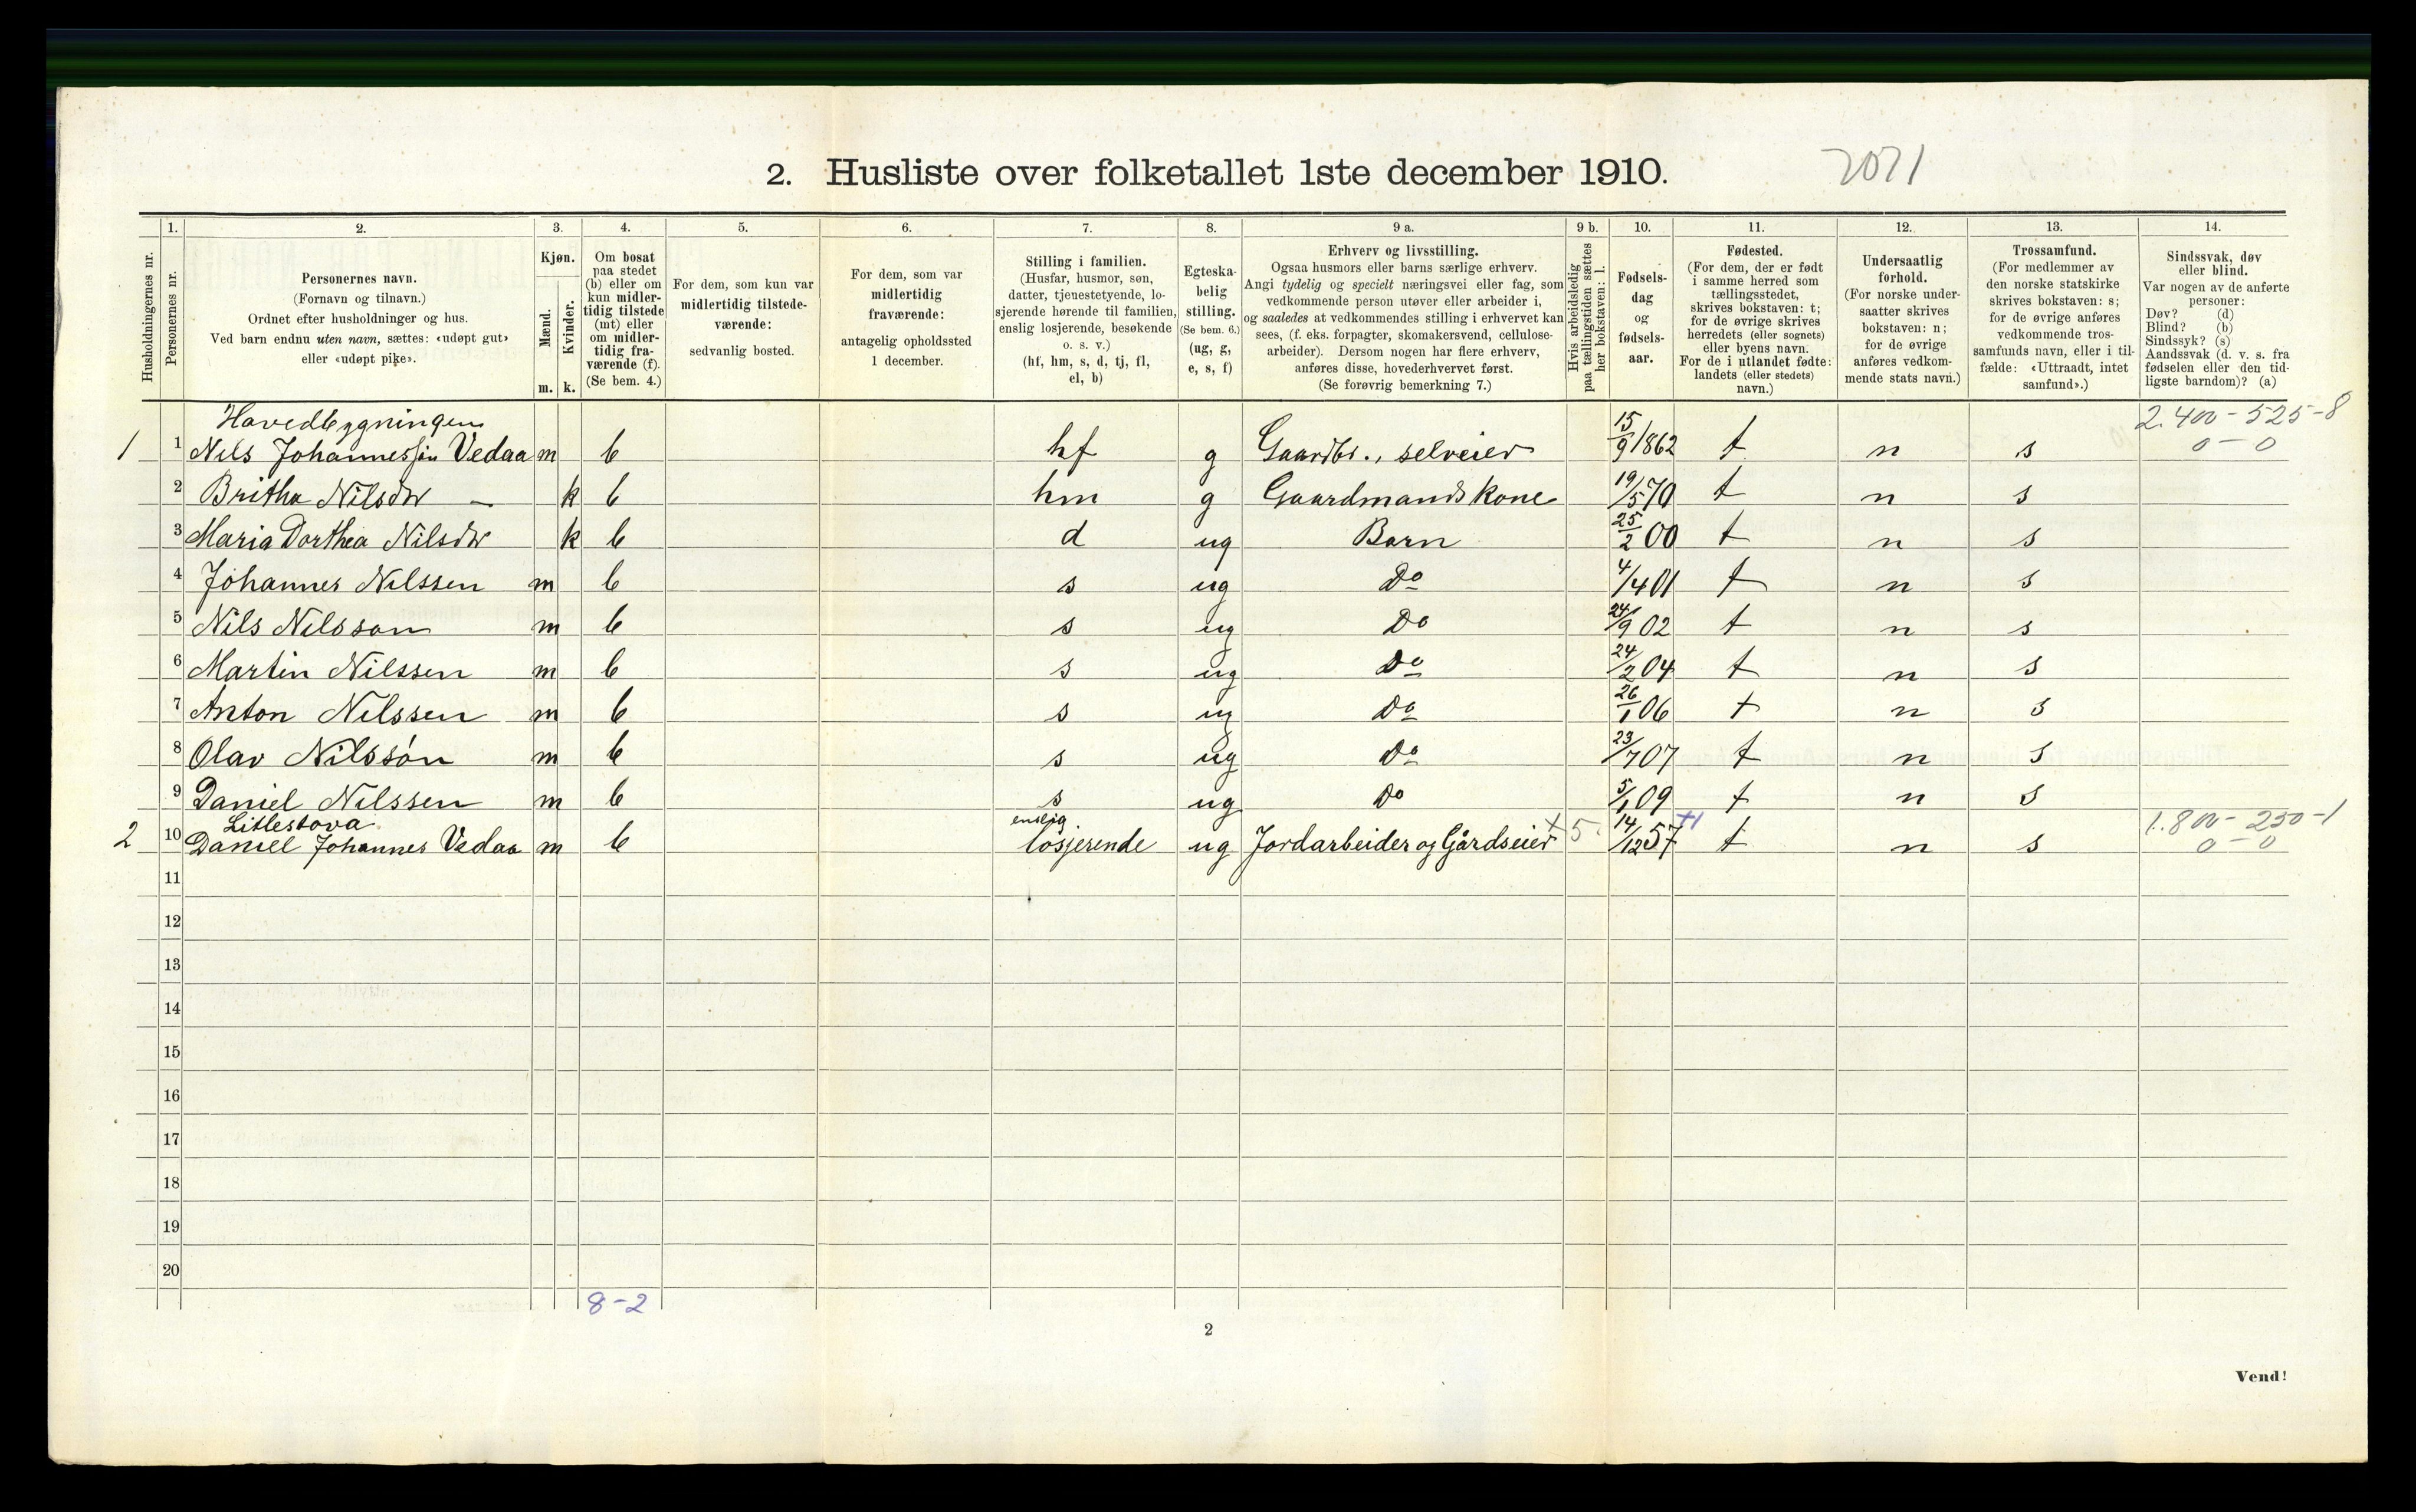 2. Husliste over folketallet 1ste december 1910.
2071
Husholdningernes nr.
1.
Personernes nr.
2.
Personernes navn.
(Fornavn og tilnavn.)
Ordnet efter husholdninger og hus.
Ved barn endnu uten navn, sættes: «udøpt gut»
eller «udøpt pike».
3.
Kjøn.
Mænd.
Kvinder.
m. k.
4.
Om bosat
paa stedet
(b) eller om
kun midler-
tidig tilstede
(mt) eller
om midler-
tidig fra-
værende (f).
(Se bem. 4.)
5.
For dem, som kun var
midlertidig tilstede-
værende:
sedvanlig bosted.
6.
For dem, som var
midlertidig
fraværende:
antagelig opholdssted
1 december.
7.
Stilling i familien.
(Husfar, husmor, søn,
datter, tjenestetyende, lo-
sjerende hørende til familien,
enslig losjerende, besøkende
o. s. v.)
(hf, hm, s, d, tj, fl,
el, b)
8.
Egteska-
belig
stilling.
(Se bem. 6.)
(ug, g,
e, s, f)
9 a.
Erhverv og livsstilling.
Ogsaa husmors eller barns særlige erhverv.
Angi tydelig og specielt næringsvei eller fag, som
vedkommende person utøver eller arbeider i,
og saaledes at vedkommendes stilling i erhvervet kan
sees, (f. eks. forpagter, skomakersvend, cellulose-
arbeider). Dersom nogen har flere erhverv,
anføres disse, hovederhvervet først.
(Se forøvrig bemerkning 7.)
9 b.
Hvis arbeidsledig
paa tællingstiden sættes
her bokstaven: l.
10.
Fødsels-
dag
og
fødsels-
aar.
11.
Fødested.
(For dem, der er født
i samme herred som
tællingsstedet,
skrives bokstaven: t;
for de øvrige skrives
herredets (eller sognets)
eller byens navn.
For de i utlandet fødte:
landets (eller stedets)
navn.)
12.
Undersaatlig
forhold.
(For norske under-
saatter skrives
bokstaven: n;
for de øvrige
anføres vedkom-
mende stats navn.)
13.
Trossamfund.
(For medlemmer av
den norske statskirke
skrives bokstaven: s;
for de øvrige anføres
vedkommende tros-
samfunds navn, eller i til-
fælde: «Uttraadt, intet
samfund».)
14.
Sindssvak, døv
eller blind.
Var nogen av de anførte
personer:
Døv? (d)
Blind? (b)
Sindssyk? (s)
Aandssvak (d. v. s. fra
fødselen eller den tid-
ligste barndom)? (a)
Hovedbygningen 2.400-525-8
1 1 Nils Johannessøn Vedaa m b hf g Gaardbr., selveier 15/9 1862 t n s 0-0
2 Britha Nilsdtr — k b hm g Gaardmands kone 19/5 70 t n s
3 Maria Dorthea Nilsdtr k b d ug Barn 25/2 00 t n s
4 Johannes Nilssen m b s ug Do 4/4 01 t n s
5 Nils Nilsson m b s ug Do 24/9 02 t n s
6 Martin Nilssen m b s ug Do 24/2 04 t n s
7 Anton Nilssen m b s ug Do 26/1 06 t n s
8 Olav Nilssøn m b s ug Do 23/7 07 t n s
9 Daniel Nilssen m b s ug Do 5/1 09 t n s
Litlestova enslig 1.800-250-1
2 10 Daniel Johannes Vedaa m b losjerende ug Jordarbeider og Gårdseier x 5. 14/12 57 +1 t n s 0-0
11
12
13
14
15
16
17
18
19
20
8-2
2
Vend!